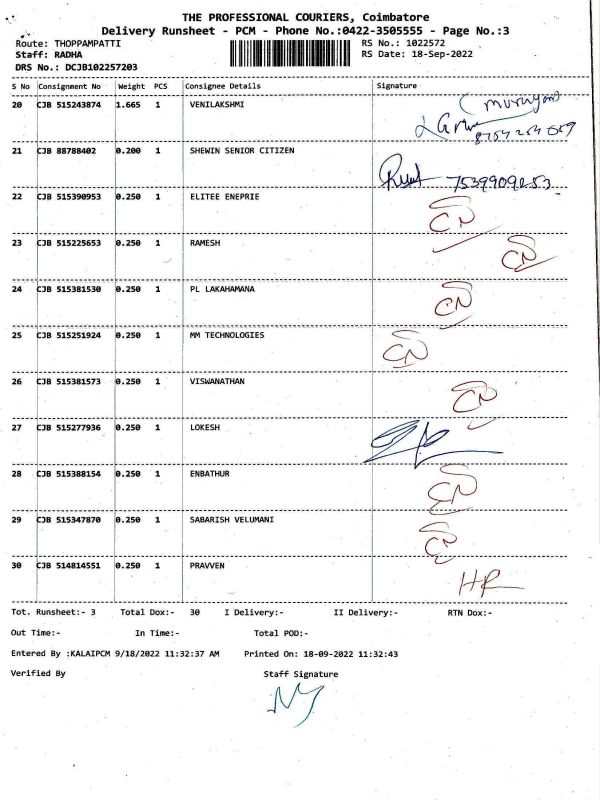 THE PROFESSIONAL COURIERS, Coimbatore
Delivery Runsheet - PCM - Phone No.:0422-3505555 - Page No.:3
Route: THOPPAMPATTI RS No.: 1022572
Staff: RADHA RS Date: 18-Sep-2022
DRS No.: DCJB102257203
S No Consignment No Weight PCS Consignee Details Signature
20 CJB 515243874 1.665 1 VENILAKSHMI
21 CJB 88788402 0.200 1 SHEWIN SENIOR CITIZEN
22 CJB 515390953 0.250 1 ELITEE ENEPRIE
23 CJB 515225653 0.250 1 RAMESH
24 CJB 515381530 0.250 1 PL LAKAHAMANA
25 CJB 515251924 0.250 1 MM TECHNOLOGIES
26 CJB 515381573 0.250 1 VISWANATHAN
27 CJB 515277936 0.250 1 LOKESH
28 CJB 515388154 0.250 1 ENBATHUR
29 CJB 515347870 0.250 1 SABARISH VELUMANI
30 CJB 514814551 0.250 1 PRAVVEN
HR
Tot. Runsheet:- 3 Total Dox:- 30 I Delivery:- II Delivery:- RTN Dox:-
Out Time:- In Time:- Total POD:-
Entered By :KALAIPCM 9/18/2022 11:32:37 AM Printed On: 18-09-2022 11:32:43
Verified By Staff Signature